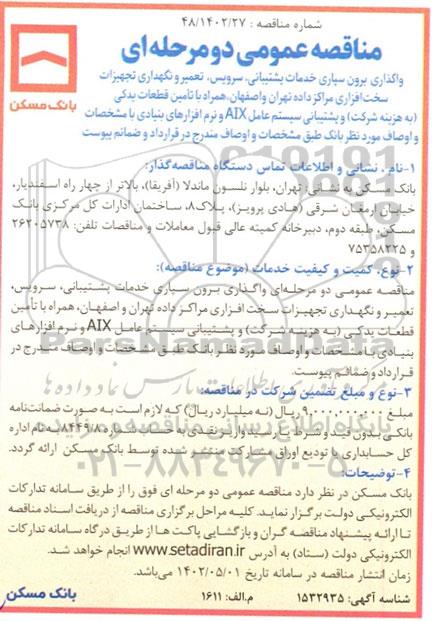 شماره مناقصه : ۴۸/۱۴۰۲/۲۷
مناقصه عمومی دو مرحله ای
بانک مسکن
واگذاری برون سپاری خدمات پشتیبانی، سرویس، تعمیر و نگهداری تجهیزات
سخت افزاری مراکز داده تهران واصفهان، همراه با تامین قطعات یدکی
(به هزینه شرکت) و پشتیبانی سیستم عامل AIX و نرم افزارهای بنیادی با مشخصات
و اوصاف مورد نظر بانک طبق مشخصات و اوصاف مندرج در قرارداد و ضمائم پیوست
۱-نام، نشانی و اطلاعات تماس دستگاه مناقصه گذار:
بانک مسکن به نشانی: تهران، بلوار نلسون ماندلا (آفریقا)، بالاتر از چهار راه اسفندیار،
خیابان ارمغان شرقی (هادی پرویز)، پلاک۸، ساختمان ادارات کل مرکزی بانک
مسکن، طبقه دوم، دبیرخانه کمیته عالی قبول معاملات و مناقصات تلفن: ۲۶۲۰۵۷۳۸
و ۷۵۳۵۸۲۲۵
۲-نوع، کمیت و کیفیت خدمات (موضوع مناقصه):
مناقصه عمومی دو مرحله‌ای واگذاری برون سپاری خدمات پشتیبانی، سرویس،
تعمیر و نگهداری تجهیزات سخت افزاری مراکز داده تهران و اصفهان، همراه با تأمین
قطعات یدکی (به هزینه شرکت) و پشتیبانی سیستم عامل AIX و نرم افزارهای
بنیادی با مشخصات و اوصاف مورد نظر بانک طبق مشخصات و اوصاف مندرج در
قرارداد و ضمائم پیوست.
۳-نوع و مبلغ تضمین شرکت در مناقصه:
مبلغ ۹,۰۰۰,۰۰۰,۰۰۰ ریال (نه میلیارد ریال) که لازم است به صورت ضمانت‌نامه
بانکی بدون قید و شرط یا رسید واریز نقدی به حساب شماره ۸۴۴۹/۸ به نام اداره
کل حسابداری یا تودیع اوراق مشارکت منتشر شده توسط بانک مسکن ارائه گردد.
۴-توضیحات:
بانک مسکن در نظر دارد مناقصه عمومی دو مرحله ای فوق را از طریق سامانه تدارکات
الکترونیکی دولت برگزار نماید. کلیه مراحل برگزاری مناقصه از دریافت اسناد مناقصه
تا ارائه پیشنهاد مناقصه گران و بازگشایی پاکت ها از طریق درگاه سامانه تدارکات
الکترونیکی دولت (ستاد) به آدرس www.setadiran.ir انجام خواهد شد.
زمان انتشار مناقصه در سامانه تاریخ ۱۴۰۲/۰۵/۰۱ می‌باشد.
شناسه آگهی: ۱۵۳۲۹۳۵ م.الف: ۱۶۱۱ بانک مسکن
ParsNamadData
پایگاه اطلاع رسانی مناقصه مزایده
۰۲۱-۸۸۳۴۹۶۷۰-۵